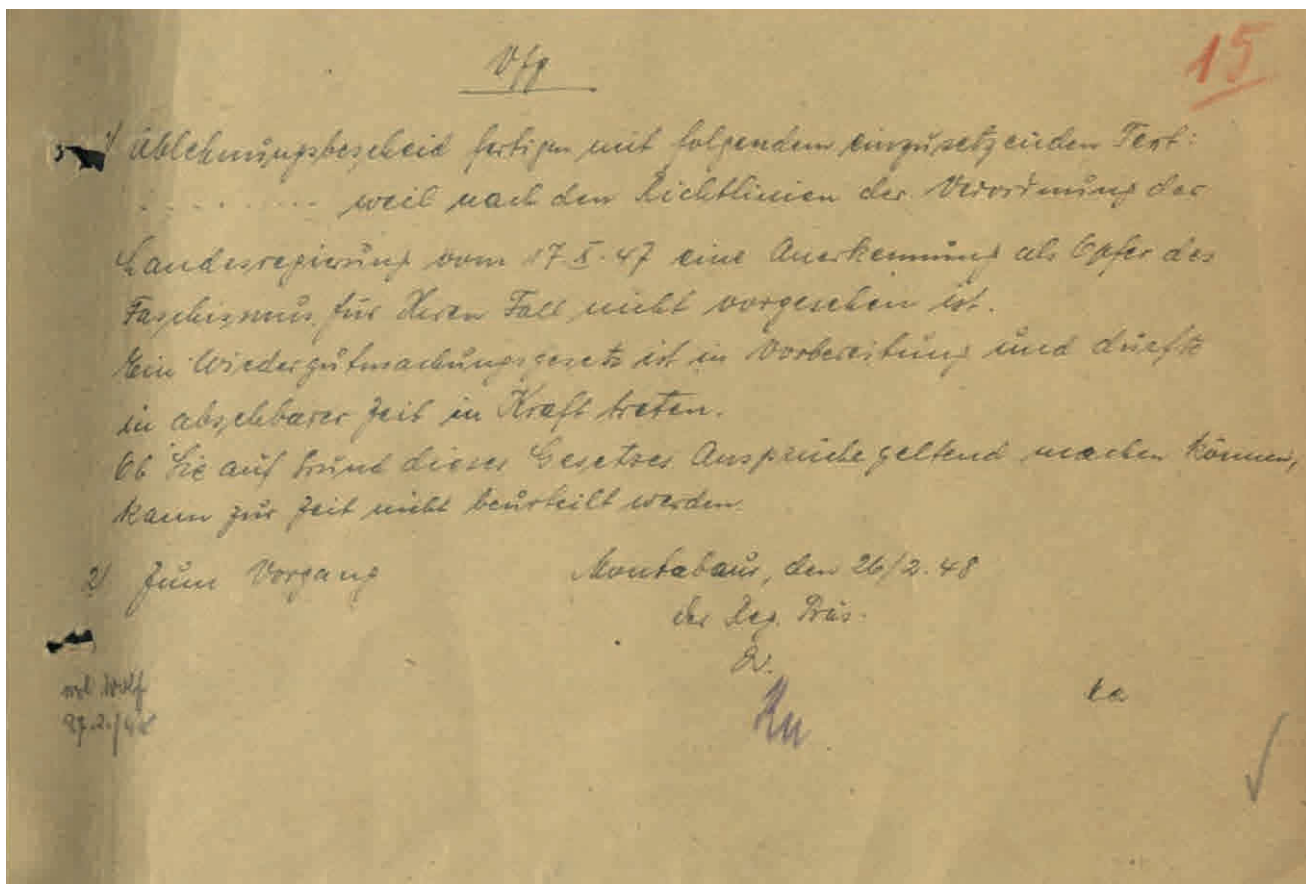 15
Vfg
1) Ablehnungsbescheid fertigen mit folgendem einzusetzenden Text:
. . . . . . . . . weil nach den Richtlinien der Verordnung der
Landesregierung vom 17.X.47 eine Anerkennung als Opfer des
Faschismus für Ihren Fall nicht vorgesehen ist.
Ein Wiedergutmachungsgesetz ist in Vorbereitung und dürfte
in absehbarer Zeit in Kraft treten.
Ob Sie auf Grund dieses Gesetzes Ansprüche geltend machen können,
kann zur Zeit nicht beurteilt werden.
2) Zum Vorgang
Montabaur, den 26/2.48
der Reg. Präs.
Wolf
27.2./48